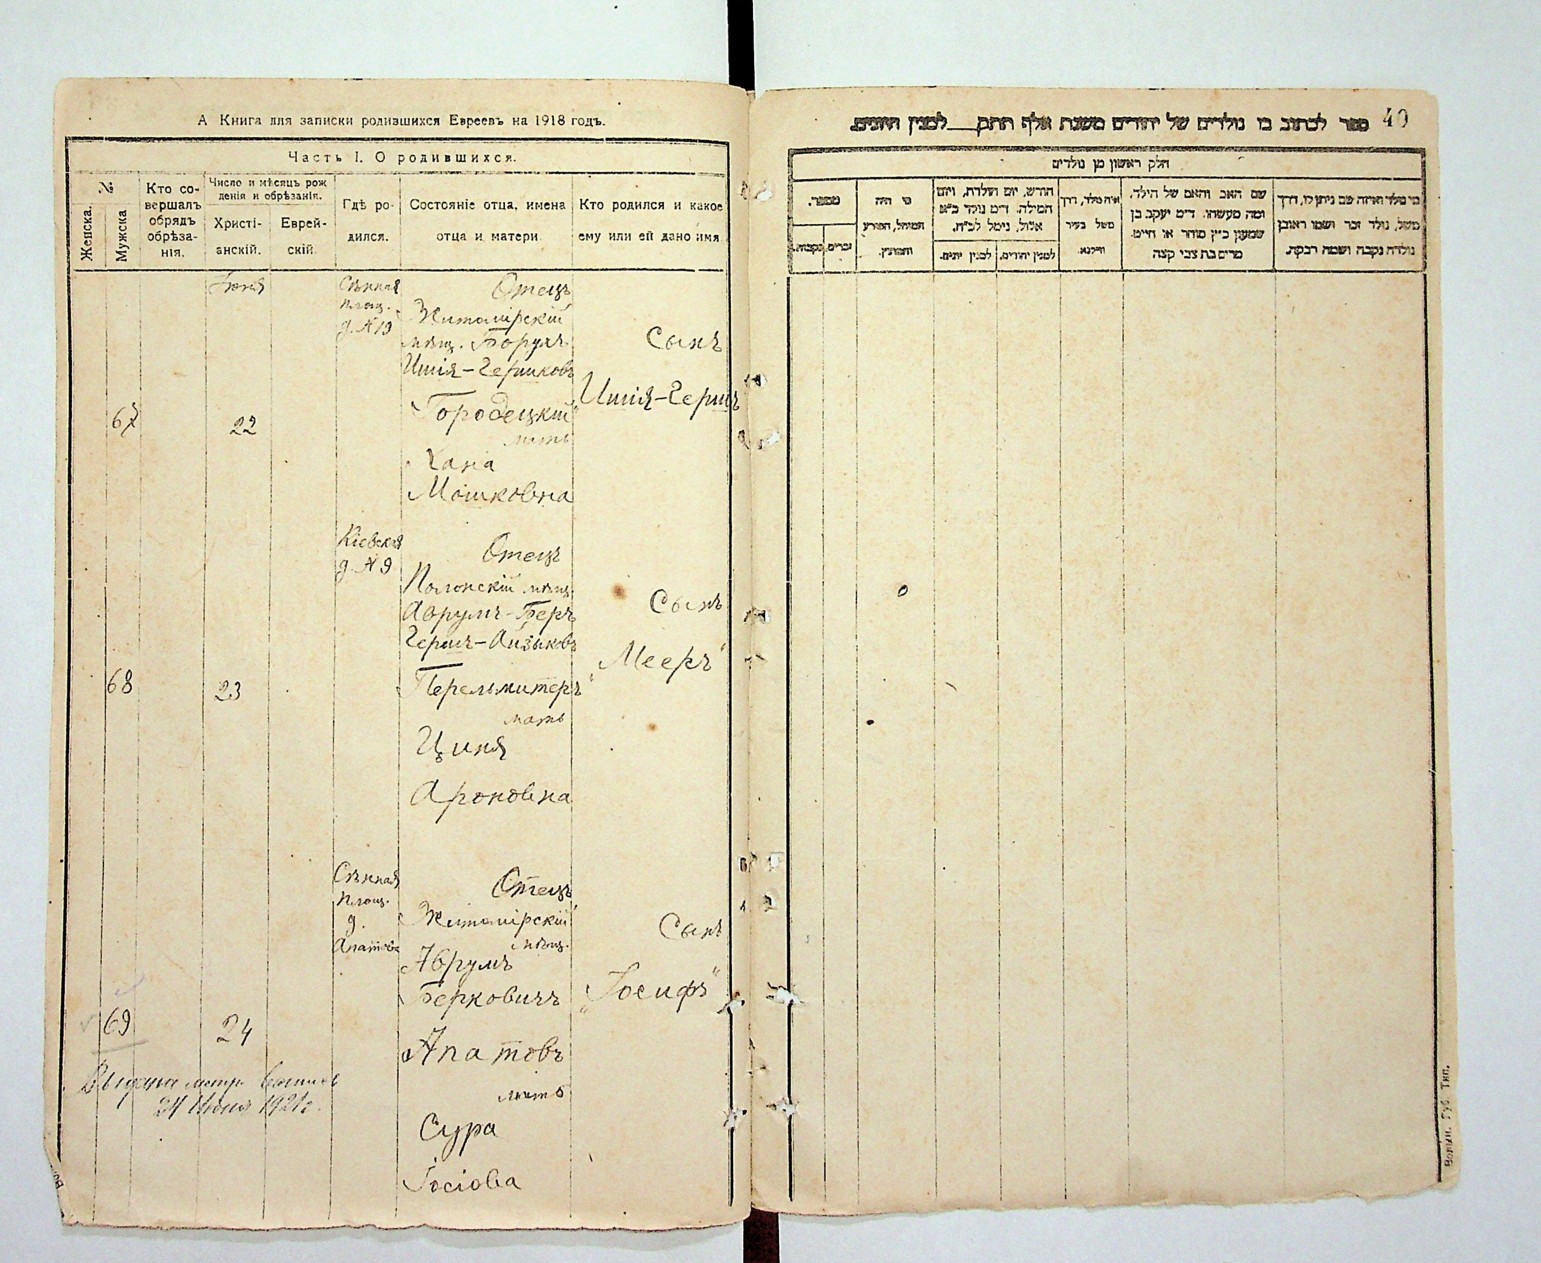 А Книга для записки родившихся Евреевъ на 1918 годъ.
Часть I. О родившихся.
№
Женска.
Мужска
Кто со-
вершалъ
обрядъ
обрѣза-
нія.
Число и мѣсяцъ рож
денія и обрѣзанія.
Христі-
анскій.
Еврей-
скій
Гдѣ ро-
дился.
Состояніе отца, имена
отца и матери
Кто родился и какое
ему или ей дано имя
67
22
Сѣнная
площ.
д. №19
Отецъ
Житомірскій
мѣщ. Борухъ
Ишія-Гершковъ
Городецкій
мать
Хана
Мошковна
Сынъ
Ишія-Гершъ
68
23
Кіевская
д. №9
Отецъ
Полонскій мѣщ.
Аврумъ-Беръ
Гершъ-Айзыковъ
Перельмитеръ
мать
Циня
Ароновна
Сынъ
„Мееръ“
69
24
Сѣнная
площ.
д.
Апатова
Отецъ
Житомірскій
мѣщ.
Аврумъ
Берковичъ
Апатовъ
мать
Сура
Іосіова
Сынъ
„Іосифъ“
Выдана метр.
24 Июня 1921 г.
ספר לכתוב בו נולדים של יהודים משנת אלף תתק למנין היונים.
40
חלק ראשון מן נולדים
מספר.
נקבות.
זכרים
מי היה
המוהל, הפורע
והמוצץ.
חודש, יום הולדת, ויום
המילה. ד״מ נולד כ״א
אלול, נימל לכ״ח.
למנין יונים.
למנין יהודים.
איה נולד, דרך
משל בעיר
ווילנא.
שם האב והאם של הילד.
ומה מעשהו. ד״מ יעקב בן
שמעון כ״ץ סוחר או חייט.
מרים בת צבי קצה
מי נולד ואיזה שם ניתן לו, דרך
משל, נולד זכר ושמו ראובן
נולדה נקבה ושמה רבקה.
Волын. Губ. Тип.